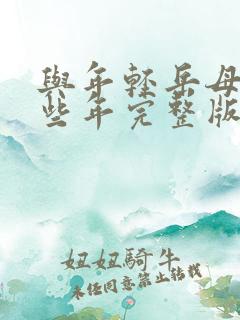 與年輕岳母
些年完整版
妞妞騎牛
未經同意禁止轉載